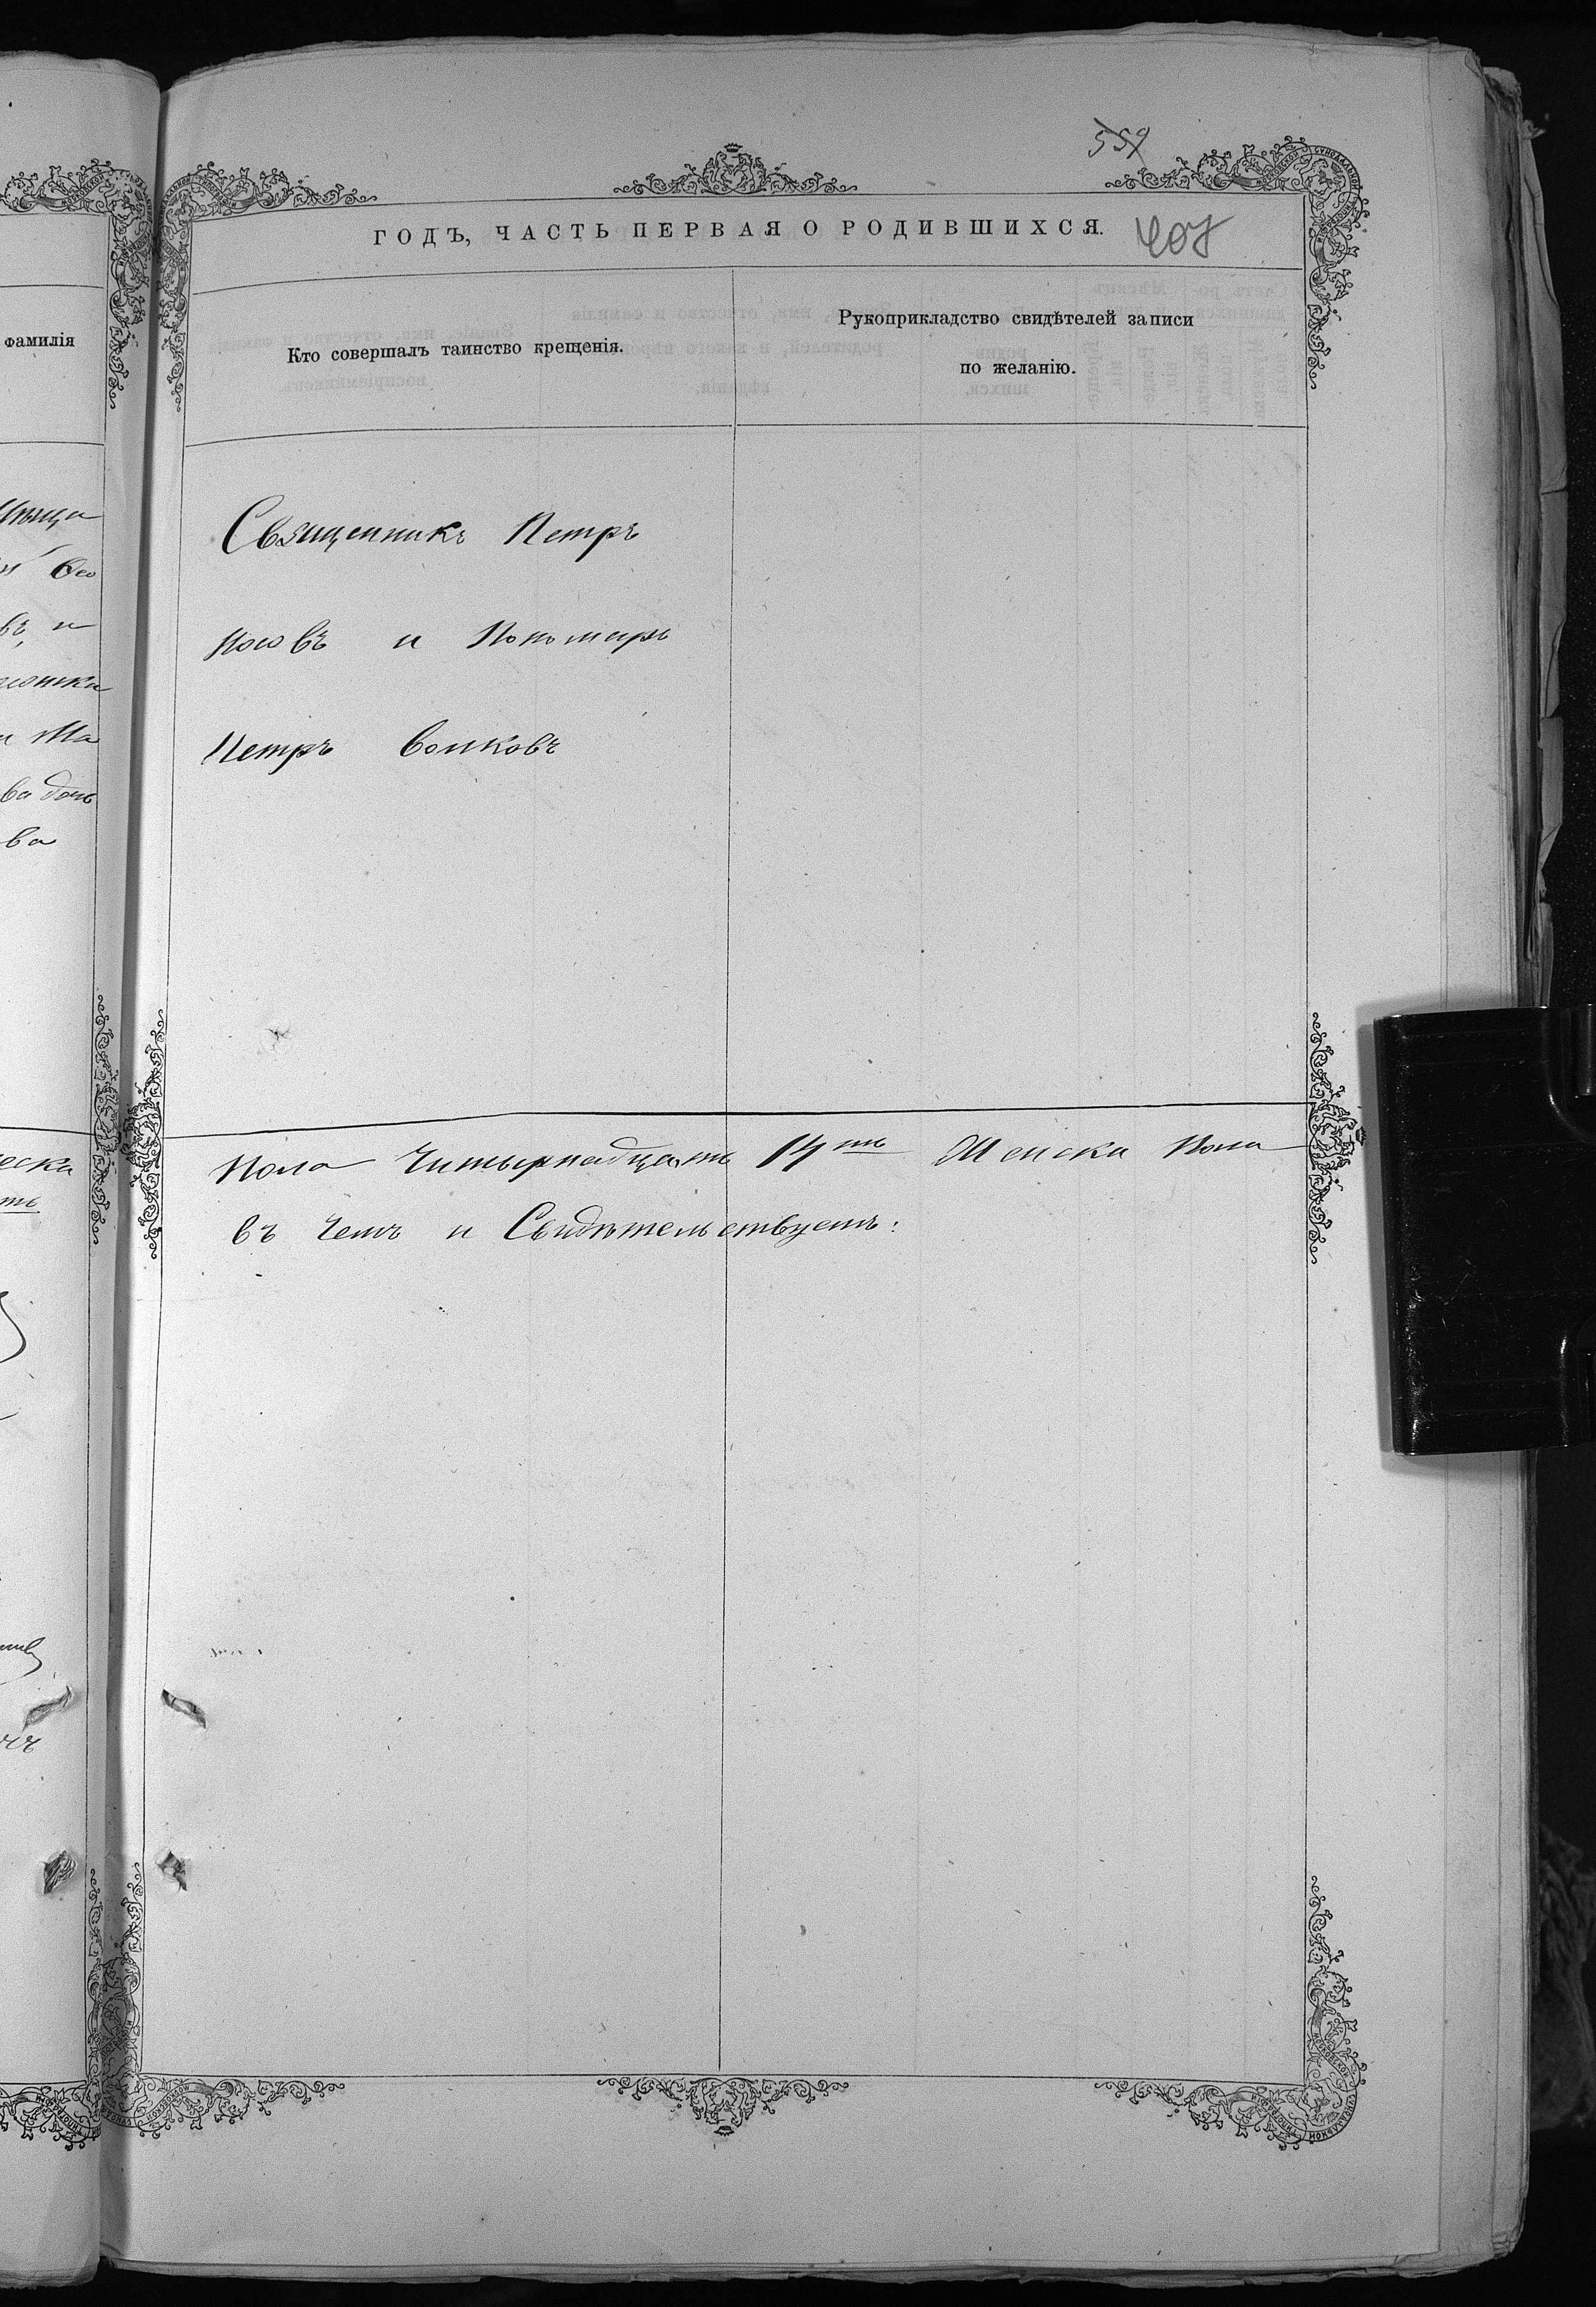 559
ГОДЪ, ЧАСТЬ ПЕРВАЯ О РОДИВШИХСЯ.
407
фамилія
Кто совершалъ таинство крещенія.
Рукоприкладство свидѣтелей записи
по желанію.
Священникъ Петръ
Носовъ и Пономарь
Петръ Волковъ
въ и
и Ма
ва дочь
ва
Пола Читырнадцать 14ть Женска Пола
въ Чемъ и Свидѣтельствуемъ: